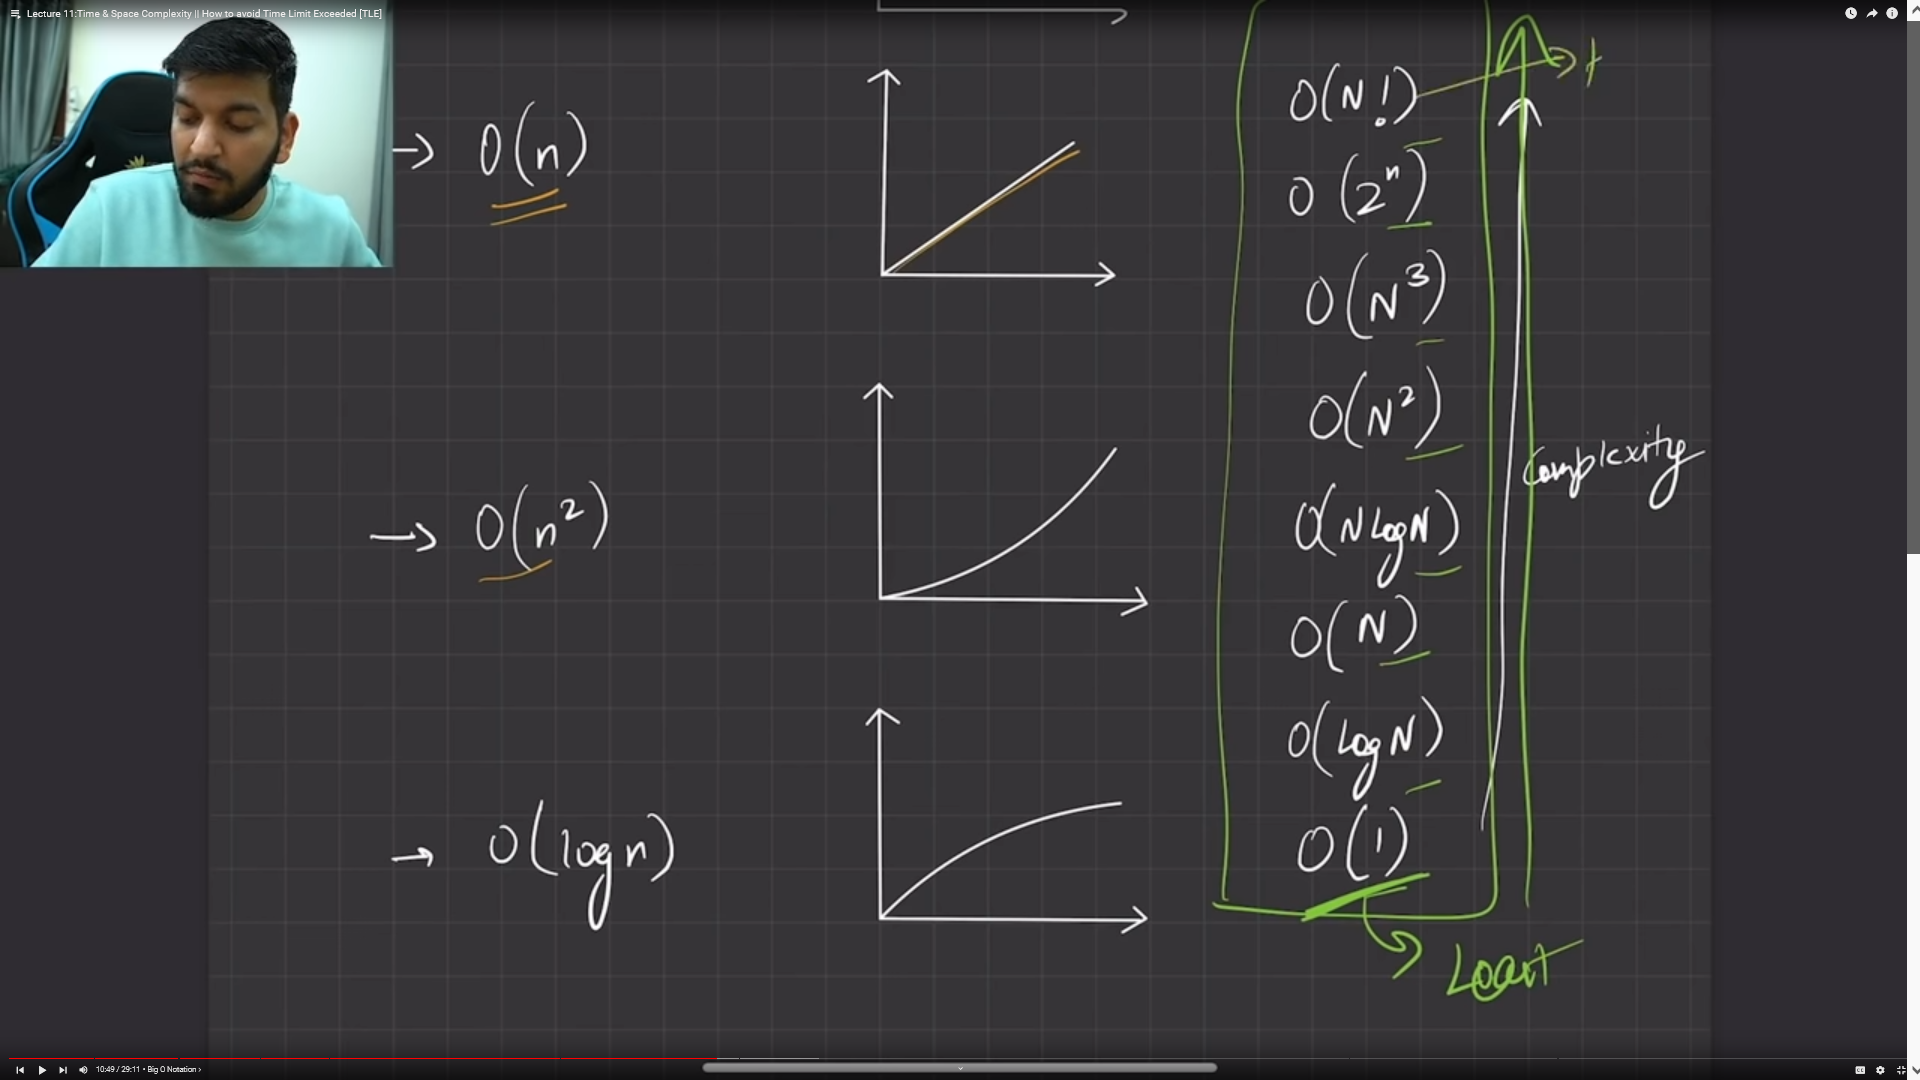 Lecture 11:Time & Space Complexity || How to avoid Time Limit Exceeded [TLE]
→ O(n)
→ O(n²)
→ O(log n)
O(N!)
O(2ⁿ)
O(N³)
O(N²)
O(N Log N)
O(N)
O(Log N)
O(1)
Complexity
10:49 / 29:11 • Big O Notation ›